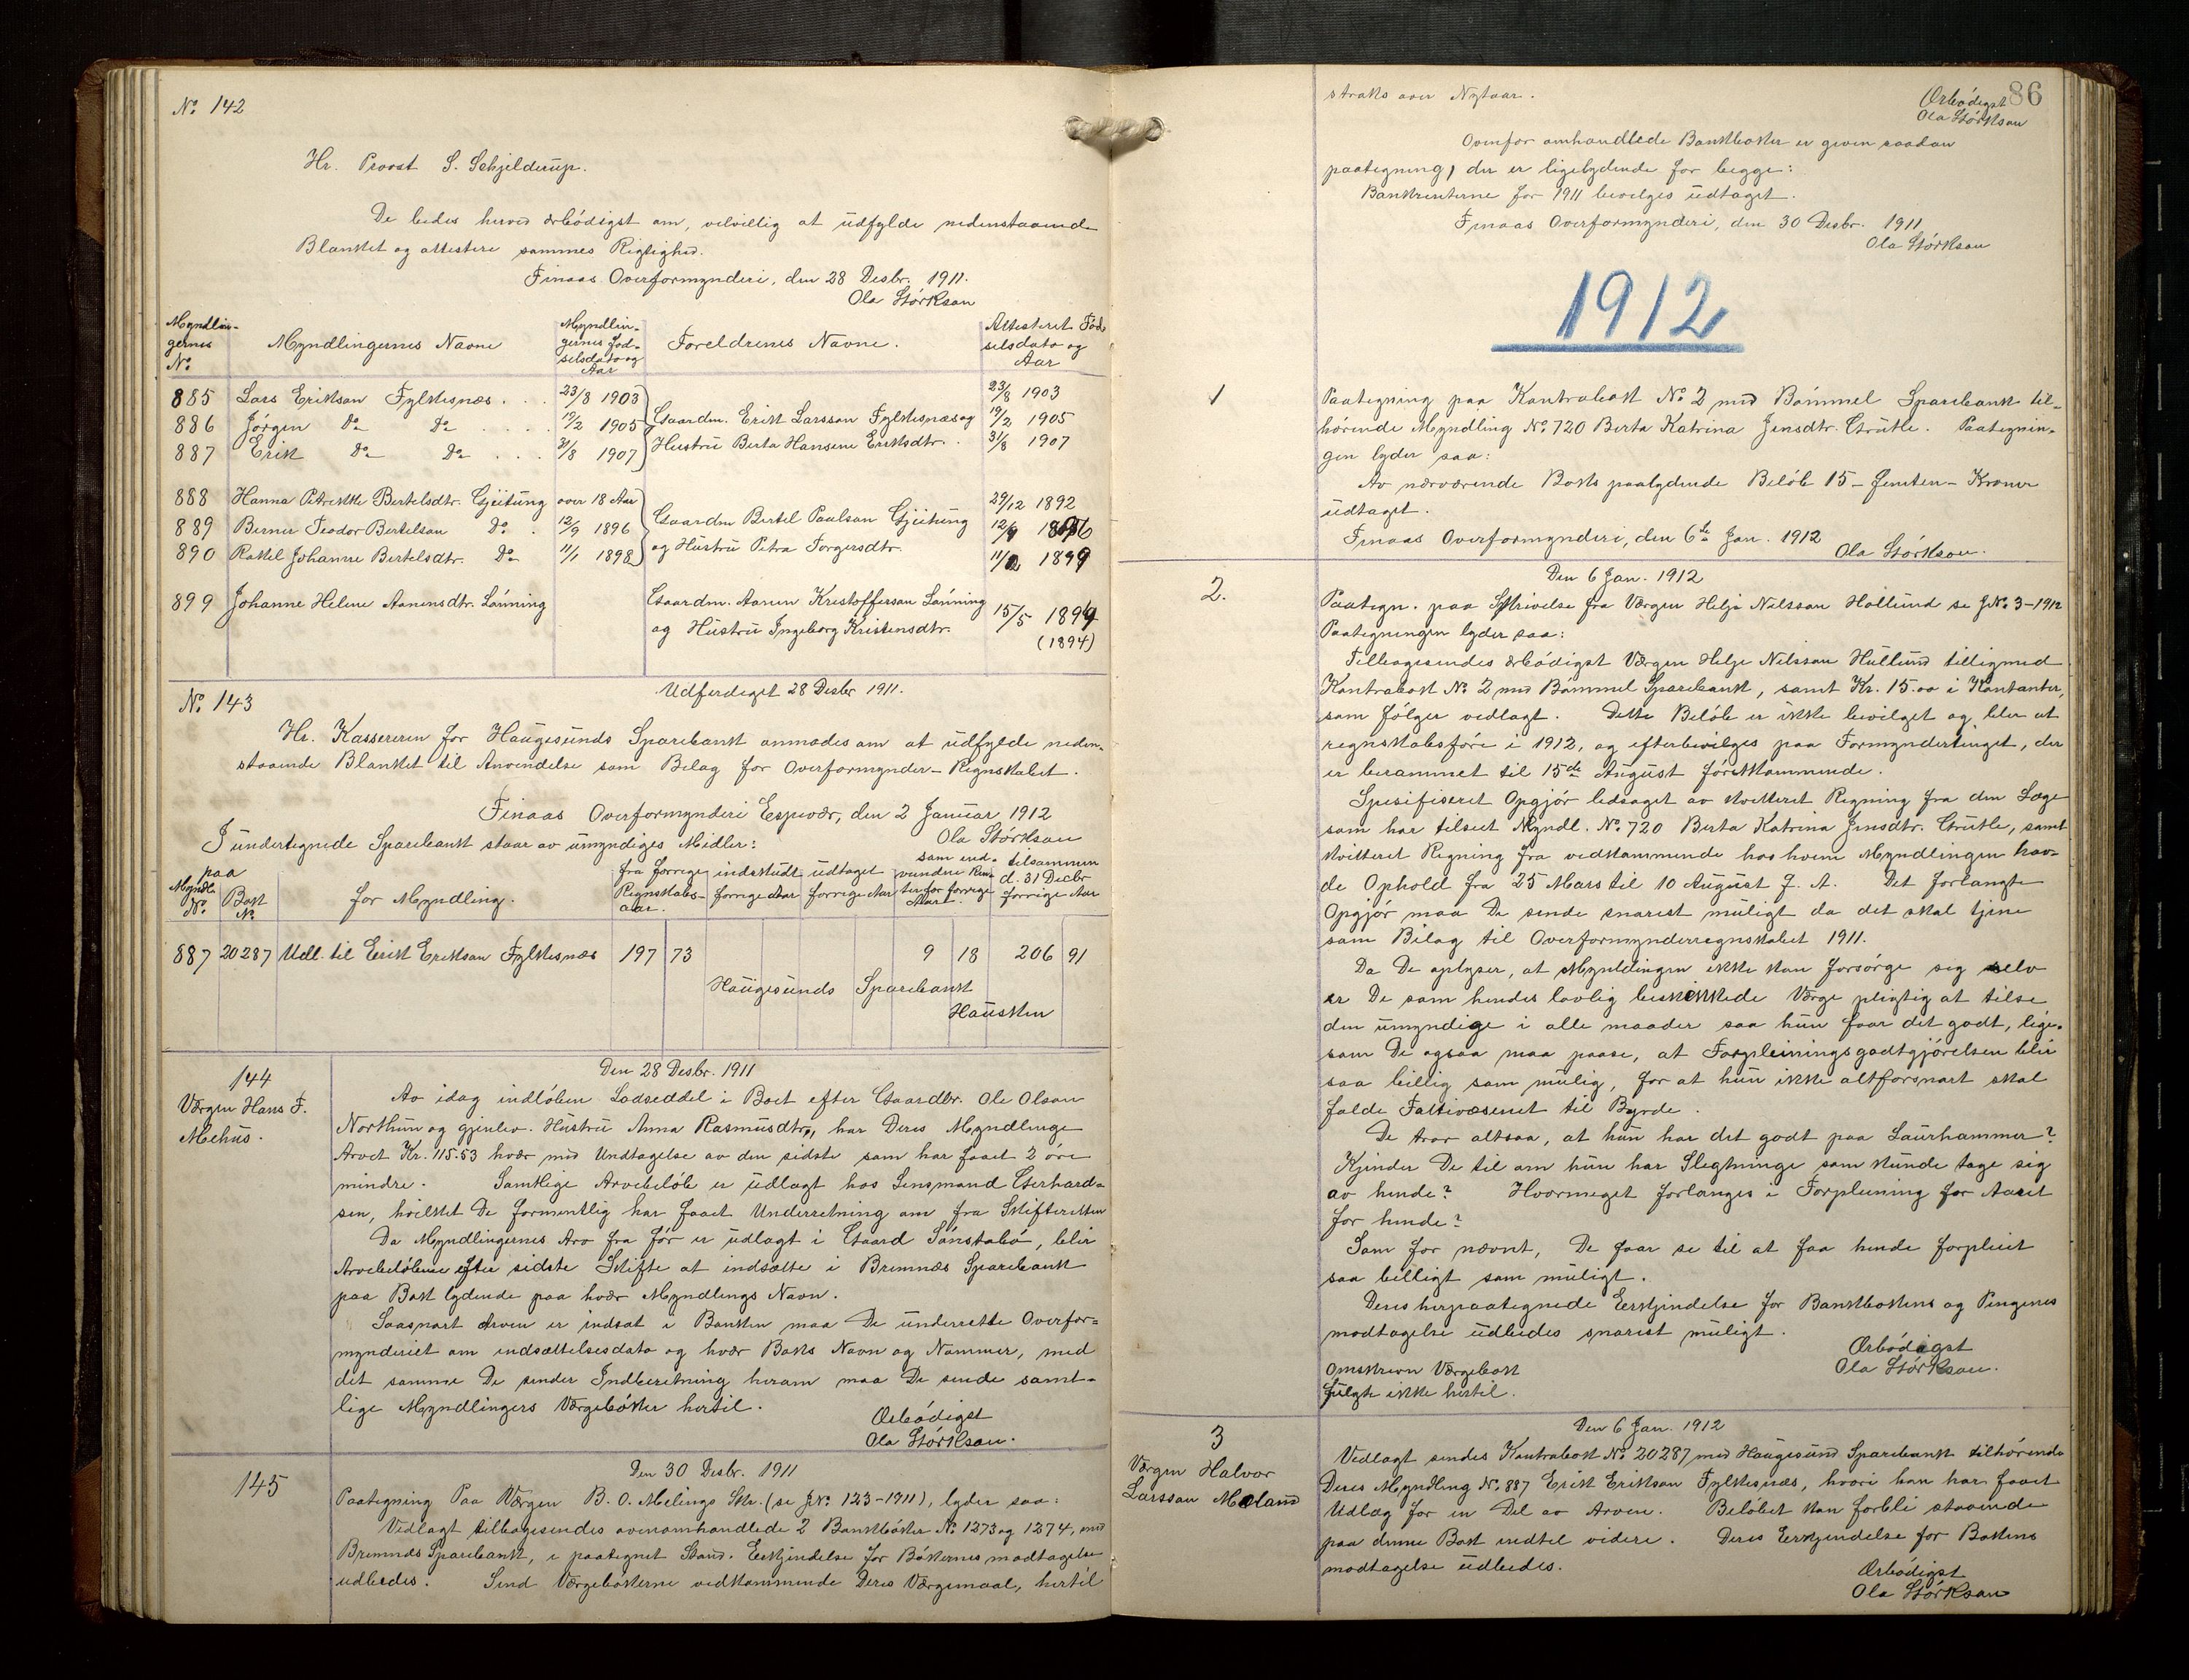 No. 142
Hr. Provst S. Schjelderup.
De bedes herved ærbödigst om, velvillig at udfylde nedenstaaende
Blanket og attestere sammes Rigtighed.
Finaas Overformynderi, den 28 Desbr. 1911.
Ola Störkson
Myndlingernes No. Myndlingernes Navne Myndlingernes födselsdato og Aar Foreldrenes Navne. Attesteret Födselsdato og Aar
885 Lars Erikson Fylkesnæs . . 23/8 1903 23/8 1903
886 Jörgen Do Do . . . . 19/2 1905 Gaardm. Erik Larsson Fylkesnæs og 19/2 1905
887 Erik Do Do . . . 31/8 1907 Hustru Berta Hansine Eriksdtr. . 31/8 1907
888 Hanna Petrikke Bertelsdtr. Gjeitung over 18 Aar 29/12 1892
889 Berner Teodor Bertelson Do. . 12/9 1896 Gaardm Bertel Paulson Gjeitung 12/9 1896
890 Rakel Johanne Bertelsdtr. Do 11/1 1898 og Hustru Petra Torgersdtr. 11/2 1899
899 Johanne Helene Aanensdtr. Lönning Gaardm. Aanen Kristofferson Lönning 15/5 1894
og Hustru Ingeborg Kristensdtr. (1894)
No. 143 Udferdiget 28 Desbr 1911.
Hr. Kassereren for Haugesunds Sparebank anmodes om at udfylde neden-
staaende Blanket til Anvendelse som Bilag for Overformynder-Regnskabet.
Finaas Overformynderi Espevær, den 2 Januar 1912
Ola Störkson
I undertegnede Sparebank staar av umyndiges Midler:
paa
Myndl. No. Bok No. for Myndling. fra forrige Regnskabsaar. indskudt forrige Aar udtaget forrige Aar som endvundne Renter for forrige Aar. tilsammen d. 31 Decbr forrige Aar
887 20287 Udl. til Erik Erikson Fylkesnæs 197 73 9 18 206 91
Haugesunds Sparebank
Hausken
144 Den 28 Desbr. 1911
Værgen Hans F.
Mehus.
Av idag indlöben Lodseddel i Boet efter Gaardbr. Ole Olson
Northun og gjenlev. Hustru Anna Rasmusdtr., har Deres Myndlinge
Arvet Kr. 115.53 hvær med Undtagelse av den sidste som har faaet 2 öre
mindre. Samtlige Arvebelöb er udlagt hos Lensmand Gerhard-
sen, hvilket De formentlig har faaet Underretning om fra Skifteretten
Da Myndlingernes Arv fra för er udlagt i Gaard Sönstabö, blir
Arvebelöbene efter sidste Skifte at indsætte i Bremnes Sparebank
paa Bok lydende paa hvær Myndlings Navn.
Saasnart Arven er indsat i Banken maa De underrette Overfor-
mynderiet om indsættelsesdato og hvær Boks Navn og Nummer, med
det samme De sender Indberetning herom maa De sende samt-
lige Myndlingers Værgeböker hertil.
Ærbödigst
Ola Störkson.
145 Den 30 Desbr. 1911
Paategning Paa Værgen B. O. Melings Skr. (se JNo. 123-1911), lyder saa:
Vedlagt tilbagesendes ovenomhandlede 2 Bankböker No. 1273 og 1274, med
Bremnes Sparebank, i paategnet Stand. Erkjendelse for Bökernes modtagelse
udbedes. Send Værgebökerne vedkommende Deres Værgemaal, hertil
86
straks over Nytaar.
Ærbödigst
Ola Störkson
Ovenfor omhandlede Bankböker er given saadan
paategning, der er ligelydende for begge:
Bankrenterne for 1911 bevelges udtaget.
Finaas Overformynderi, den 30 Desbr. 1911
Ola Störkson
1912
1
Paategning paa Kontrabok No. 2 med Bömmel Sparebank til-
hörende Myndling No. 720 Berta Katrina Jensdtr. Grutle. Paategnin-
gen lyder saa:
Av nærværende Boks paalydende Belöb 15 - femten - Kroner
udtaget.
Finaas Overformynderi, den 6te Jan. 1912
Ola Störkson.
Den 6 Jan. 1912
2.
Paategn. paa Skrivelse fra Værgen Helje Nilsson Hollund se JNo. 3-1912
Paategningen lyder saa:
Tilbagesendes ærbödigst Værgen Helje Nilsson Hullund tilligemed
Kontrabok No. 2 med Bömmel Sparebank, samt Kr. 15.00 i Kontanter,
som fölger vedlagt. Dette Belöb er ikke bevilget og blir at
regnskabsföre i 1912, og efterbevilges paa Formyndertinget, der
er berammet til 15de August förstkommende.
Spesifiseret Opgjör ledsaget av kvitteret Regning fra den Læge
som har tilseet Myndl. No. 720 Berta Katrina Jensdtr. Grutle, samt
kvitteret Regning fra vedkommende hos hvem Myndlingen hav-
de Ophold fra 25 Mars til 10 August f. A. Det forlangte
Opgjör maa De sende snarest muligt da det skal tjene
som Bilag til Overformynderregnskabet 1911.
Da De oplyser, at Myndlingen ikke kan forsörge sig selv
er De som hendes lovlig beskikkede Værge pligtig at tilse
den umyndige i alle maader saa hun faar det godt, lige-
som De ogsaa maa paase, at Forpleiningsgodtgjörelsen blir
saa billig som mulig, for at hun ikke altforsnart skal
falde Fattivæsenet til Byrde.
De tror altsaa, at hun har det godt paa Laurhammer?
Kjender De til om hun har Slegtninge som kunde tage sig
av hende? Hvormeget forlanges i Forpleining for Aaret
for hende?
Som för nævnt, De faar se til at faa hende forpleiet
saa billigt som muligt.
Deres herpaategnede Erkjendelse for Bankbokens og Pengenes
modtagelse udbedes snarest muligt.
Ærbödigst
Ola Störkson.
Omskreven Værgebok
fulgte ikke hertil.
Den 6 Jan. 1912
3
Værgen Halvor
Larsson Mæland
Vedlagt sendes Kontrabok No. 20287 med Haugesund Sparebank tilhörende
Deres Myndling No. 887 Erik Erikson Fylkesnæs, hvori han har faaet
Udlæg for en Del av Arven. Belöbet kan forbli staaende
paa denne Bok indtil videre. Deres Erkjendelse for Bokens
modtagelse udbedes.
Ærbödigst
Ola Störkson